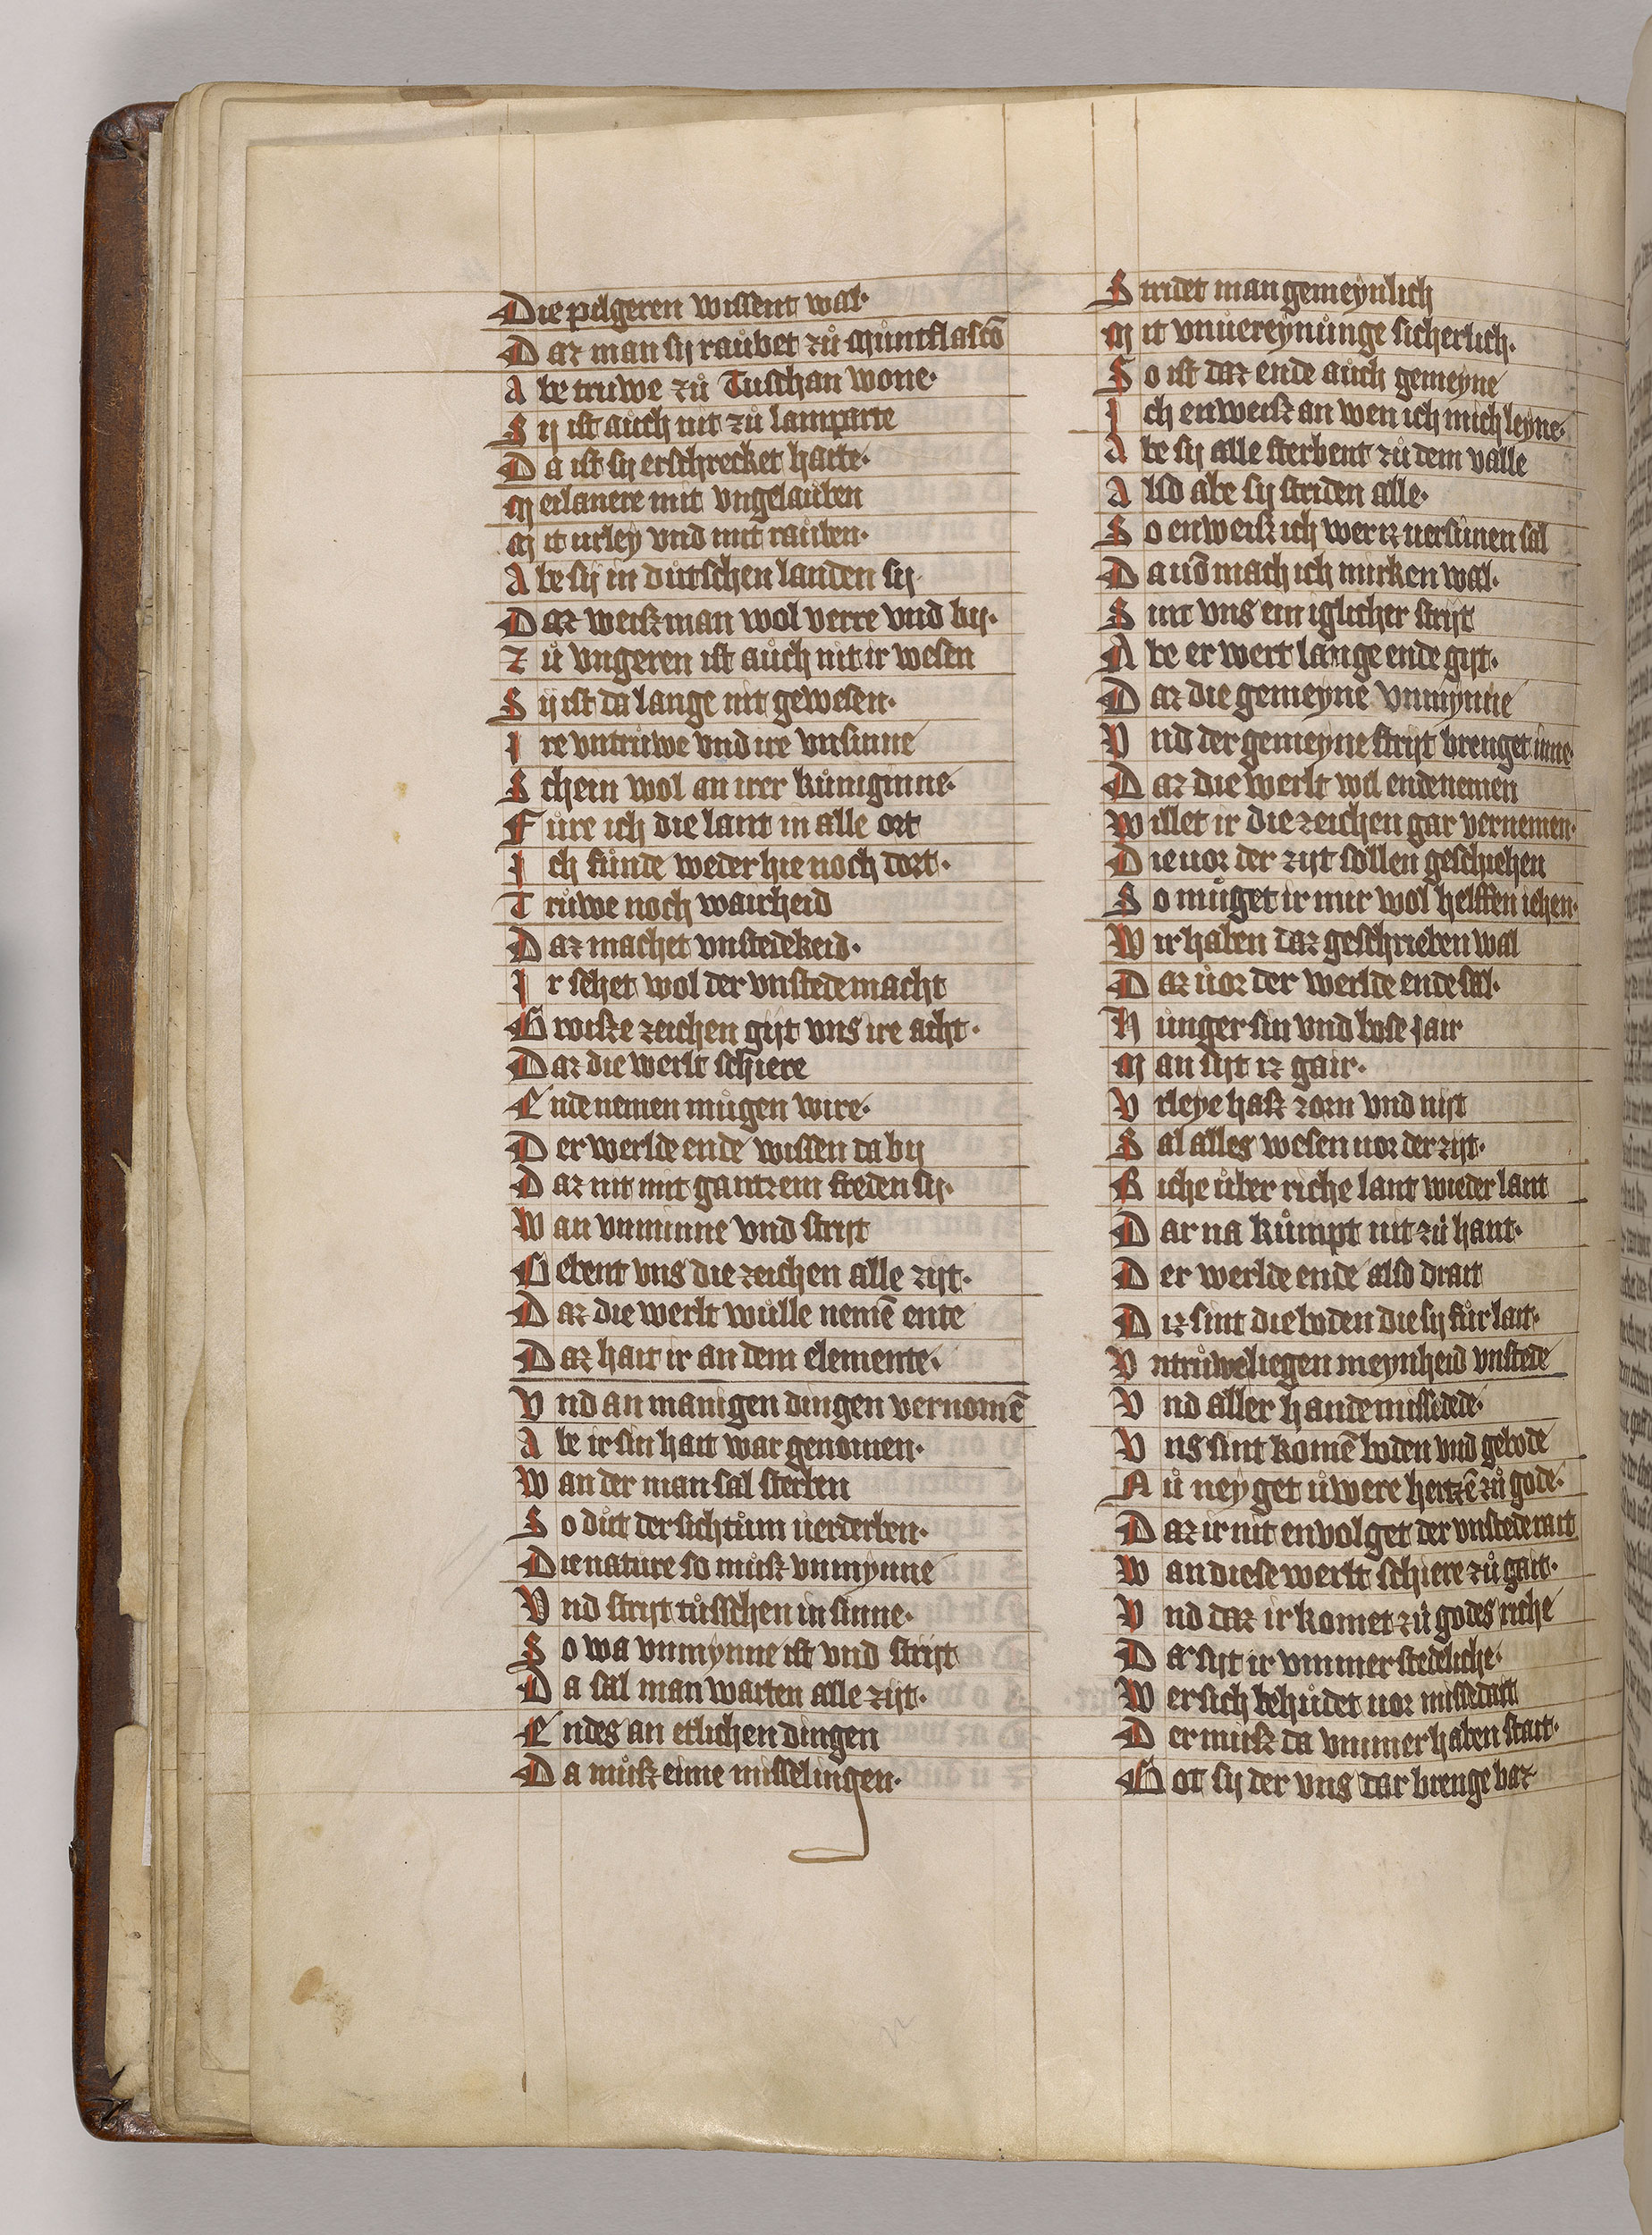 Die pilgeren wissent wal·
Daz man sy raůbet zů Můntflascō
Abe truwe zů Tuschan wone·
Sy ist aůch nit zů lamparte
Da ist sy erschrecket harte·
Meilanere mit vngelaůben
Mit urley vnd mit raůben·
Abe sy in důtschen landen sy
Daz weisz man wol verre vnd by·
Zů vngeren ist aůch nit ir wesen
Sy ist da lange nit gewesen·
Ire vntrůwe vnd ire vnsinne
Schein wol an irer kůniginne·
Fůre ich die lant in alle ort
Ich fůnde weder hie noch dort·
Trůwe noch wairheid
Daz machet vnstedekeid·
Ir sehet wol der vnstede macht
Groisze zeichen gijt vns ire acht·
Daz die werlt schiere
Ende nemen můgen wire·
Der werlde ende wissen da by
Daz nit mit gantzem steden sy·
Wan vnminne vnd strijt
Gebent vns die zeichen alle zijt·
Daz die werlt wůlle nemē ente
Daz hait ir an dem elemente·
Vnd an manigen dingen vernomē
Abe ir sin hait war genomen·
Wan der man sal sterben
So důt der sichtům uerderben·
Die nature so můsz vnmynne
Vnd strijt tůsschen in sinne·
So wa vnmynne ist vnd strijt
Da sal man warten alle zijt·
Endes an etlichen dingen
Da můsz eime misselingen·
Stridet man gemeynlich
Mit vnuereynůnge sicherlich·
So ist daz ende aůch gemeyne
Ich enweisz an wen ich mich leyne·
Abe sy alle sterbent zů dem valle
Also abe sy striden alle·
So enweisz ich wer iz uersůnen sal
Dauō mach ich mirken wal·
Sint vns ein iglicher strijt
Abe er wert lange ende gijt·
Daz die gemeyne vnmynne
Vnd der gemeyne strijt brenget inne
Daz die werlt wil ende nemen
Willet ir die zeichen gar vernemen·
Die uor der zijt sollen geschiehen
So můget ir mir wol helffen iehen·
Wir haben daz geschrieben wal
Daz uor der werlde ende sal·
Hůnger sin vnd bose jair
Man sijt iz gair·
Vrleye hasz zorn vnd nijt
Sal alles wesen uor der zijt·
Riche ůber riche lant wieder lant
Dar na kůmpt nit zů hant·
Der werlde ende also drait
Diz sint die boden die sy fůr lait·
Vntrůwe liegen meynheid vnstede
Vnd aller hande missedede·
Vns sint komē boden vnd gebode
Nů neyget ůwere hertzē zů gode·
Daz ir nit envolget der vnstede rait
Wan diese werlt schiere zů gait·
Vnd daz ir komet zů godes riche
Da sijt ir vmmer stedeliche·
Wer sich behůdet uor missedait
Der můsz da vmmer haben stait·
Got sy der vns dar brenge baz